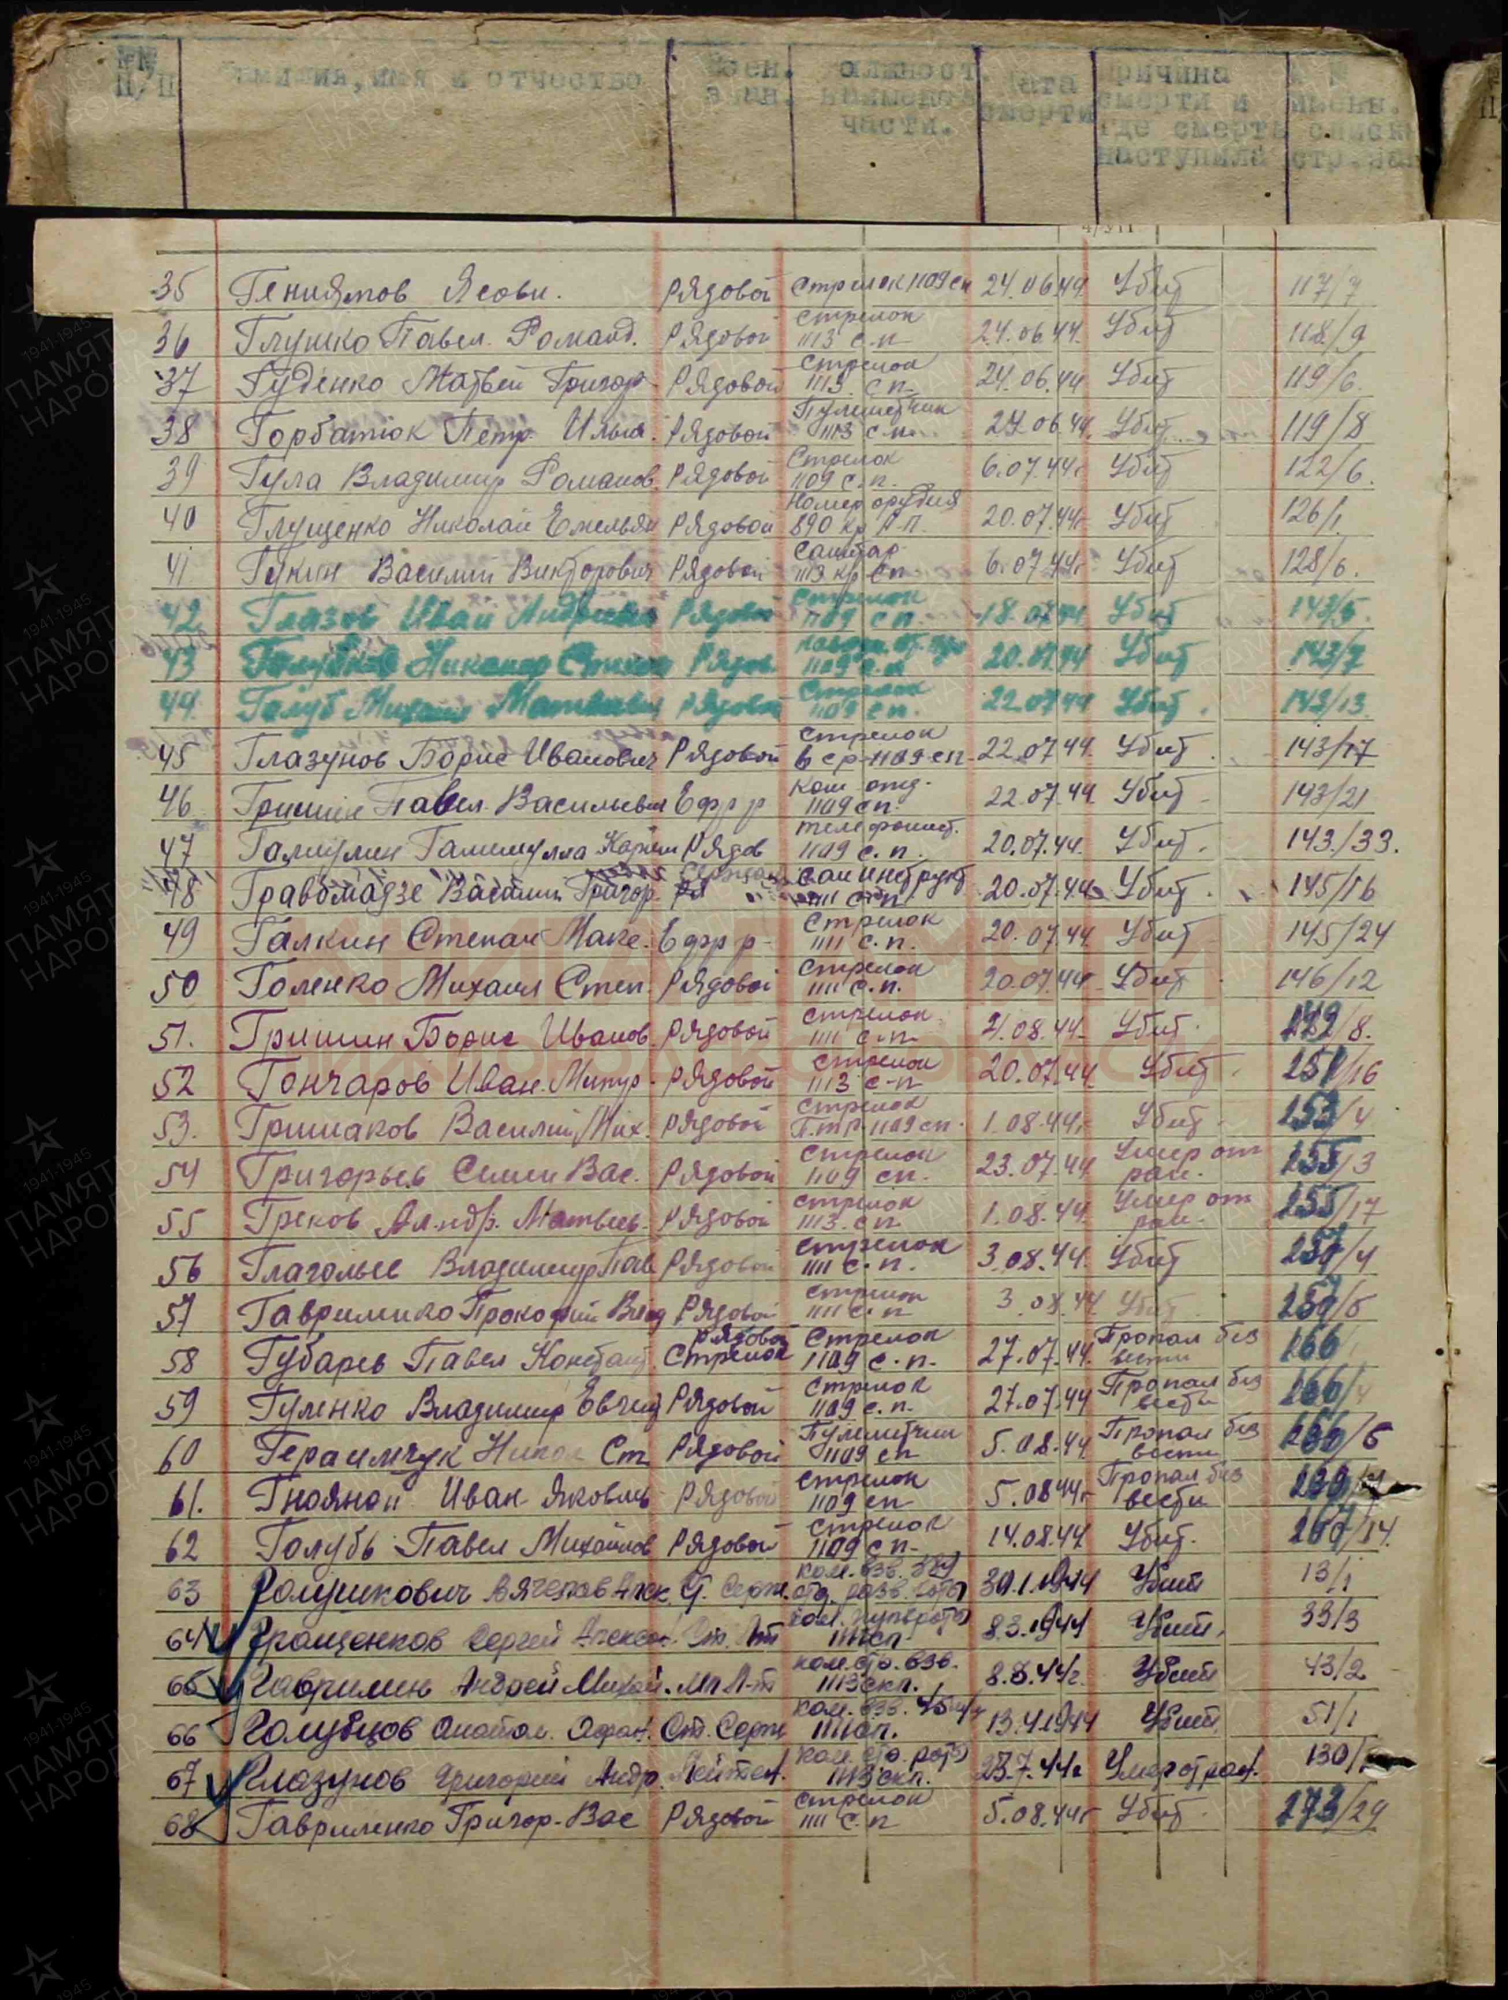 №№ фамилия, имя и отчество воен. должност. Дата причина
п/п зван. наименов. смерти смерти и именн.
части. где смерть списк
наступила стр.
35 Гениямов Ясови. Рядовой Стрелок 1109 сп 24.06.44 Убит 117/7
36 Глушко Павел Романд. Рядовой Стрелок 1113 с.п. 24.06.44. Убит 118/9
37 Гуденко Матвей Григор. Рядовой Стрелок 1113 с.п. 24.06.44 Убит 119/6.
38 Горбатюк Петр. Ильич. Рядовой Пулеметчик 1113 с.п. 24.06.44. Убит 119/8
39 Гула Владимир Романов. Рядовой Стрелок 1109 с.п. 6.07.44г Убит 122/6.
40 Глущенко Николай Емельян Рядовой Номер орудия 890 кр А.П. 20.07.44г Убит 126/1.
41 Гукин Василий Викторович Рядовой Санитар 1113 кр сп 6.07.44г Убит 128/6.
42 Глазов Иван Андреевич Рядовой Стрелок 1109 сп. 18.07.44 Убит 143/5.
43 Никанор Рядов. 1109 с.п. 20.07.44 Убит 143/7
44. Голуб Михаил Матвеевич Рядовой Стрелок 1109 сп. 22.07.44 Убит. 143/13
45 Глазунов Борис Иванович Рядовой Стрелок в ср-1109 сп 22.07.44. Убит. 143/17
46 Гришин Павел Васильевич Ефр р Ком. отд. 1109 сп. 22.07.44. Убит 143/21
47 Галиулин Галимулла Карим Рядов Телефонист. 1109 с.п. 20.07.44. Убит. 143/33.
48 Василий Григор. Сержант Санинструкт 1111 сп 20.07.44 Убит. 145/16
49 Галкин Степан Макс. Ефр р- Стрелок 1111 с.п. 20.07.44. Убит 145/24
50 Голенко Михаил Степ. Рядовой Стрелок 1111 с.п. 20.07.44г Убит. 146/12
51. Гришин Борис Иванов. Рядовой Стрелок 1111 с.п. 2.08.44. Убит. /8.
52 Гончаров Иван Митр. Рядовой Стрелок 1113 с-п 20.07.44. Убит. 251/16
53. Гришаков Василий Мих. Рядовой Стрелок П.тр. 1109 сп. 1.08.44г Убит. 253/4
54 Григорьев Семен Вас. Рядовой Стрелок 1109 сп. 23.07.44 Умер от ран. 255/3
55 Греков Ал-ндр. Матвеев. Рядовой Стрелок 1113 сп 1.08.44. Умер от ран. 255/17
56 Глаголев Владимир Пав Рядовой Стрелок 1111 с.п. 3.08.44. Убит /4
57 Гавриленко Прокофий Влад Рядовой Стрелок 1111 с.п 3.08.44 Убит /5
58 Губарев Павел Констант. рядовой Стрелок Стрелок 1109 с.п. 27.07.44. Пропал без вести 166
59 Гуленко Владимир Евген Рядовой Стрелок 1109 с.п. 27.07.44 Пропал без вести /4
60 Герасимчук Никол Ст. Рядовой Пулеметчик 1109 сп 5.08.44 Пропал без вести /6
61. Гнояной Иван Яковлев Рядовой Стрелок 1109 сп 5.0844г Пропал без вести
62 Голубь Павел Михайлов Рядовой Стрелок 1109 сп 14.08.44 Убит. /14.
63 Голушкович Вячеслав Ст. Серж. ком. взв. отд. разв. роты 30.1.1944 Убит 13/1
64 Гращенков Сергей Алексан. Ст. Л-т ком. пульроты 1111 сп. 8.3.1944 Убит. 33/3
65 Гаврилин Андрей Михай. Мл. Л-т ком. стр. взв. 1113 скп. 8.8.44г. Убит 43/2
66 Голубцов Анатол. Афан. Ст. Серж ком. взв. 45 м/м 1111 сп. 13.4.1944 Убит 51/1
67 Глазунов Григорий Андр. Лейтен. ком. стр. роты 1113 скп. 23.7.44г Умер от ран. 130/
68 Гавриленко Григор. Вас Рядовой Стрелок 1111 с.п 5.08.44г Убит. 273/29